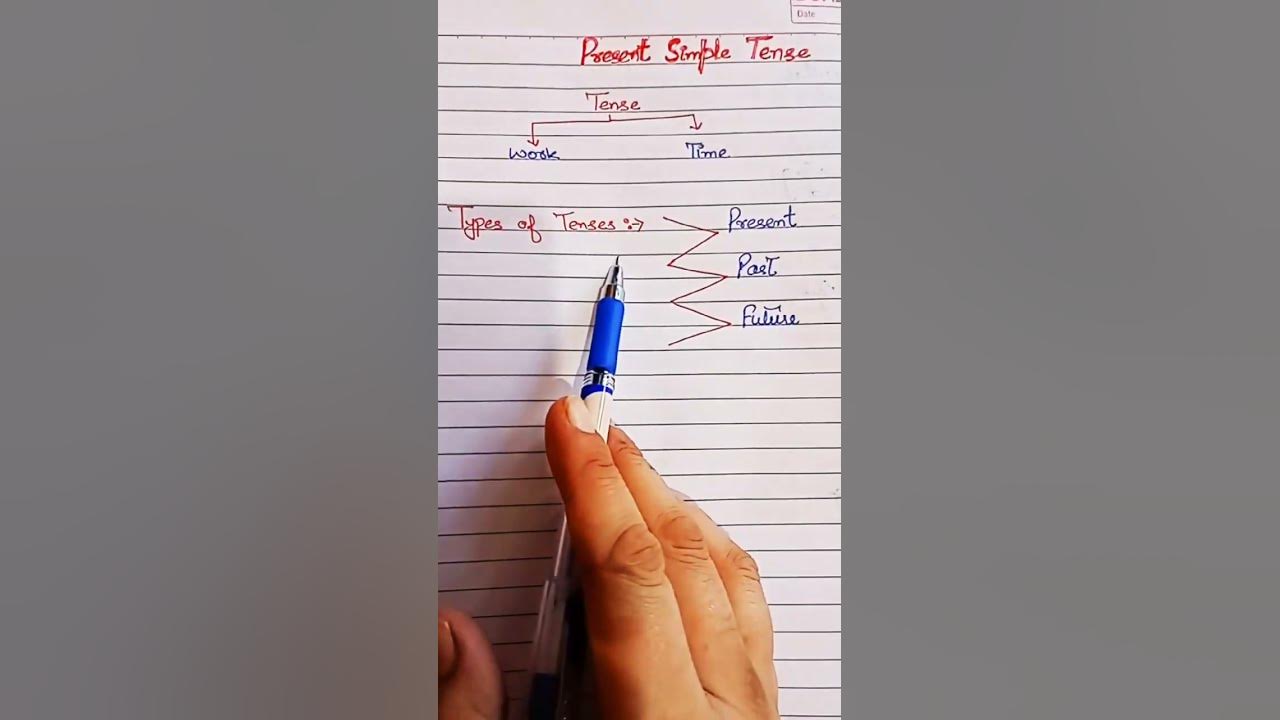 Date
Present Simple Tense
Tense
Work Time
Types of Tenses :→ Present
Past
Future